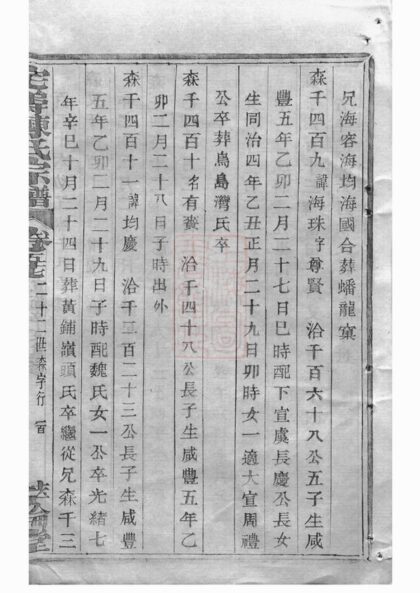 兄海容海均海國合葬蟠龍窠
森千四百九諱海珠字尊賢　洽千百六十八公五子生咸
豐五年乙卯二月二十七日巳時配下宣虞長慶公長女
生同治四年乙丑正月二十九日卯時女一適大宣周禮
公卒葬鳥島灣氏卒
森千四百十名有賚　洽千四十八公長子生咸豐五年乙
卯二月二十八日子時出外
森千四百十一諱均慶　洽千三百二十三公長子生咸豐
五年乙卯二月二十九日子時配魏氏女一公卒光緒七
年辛巳十月二十四日葬黃鋪嶺頭氏卒繼從兄森千三
陳氏宗譜
二十二世森字行